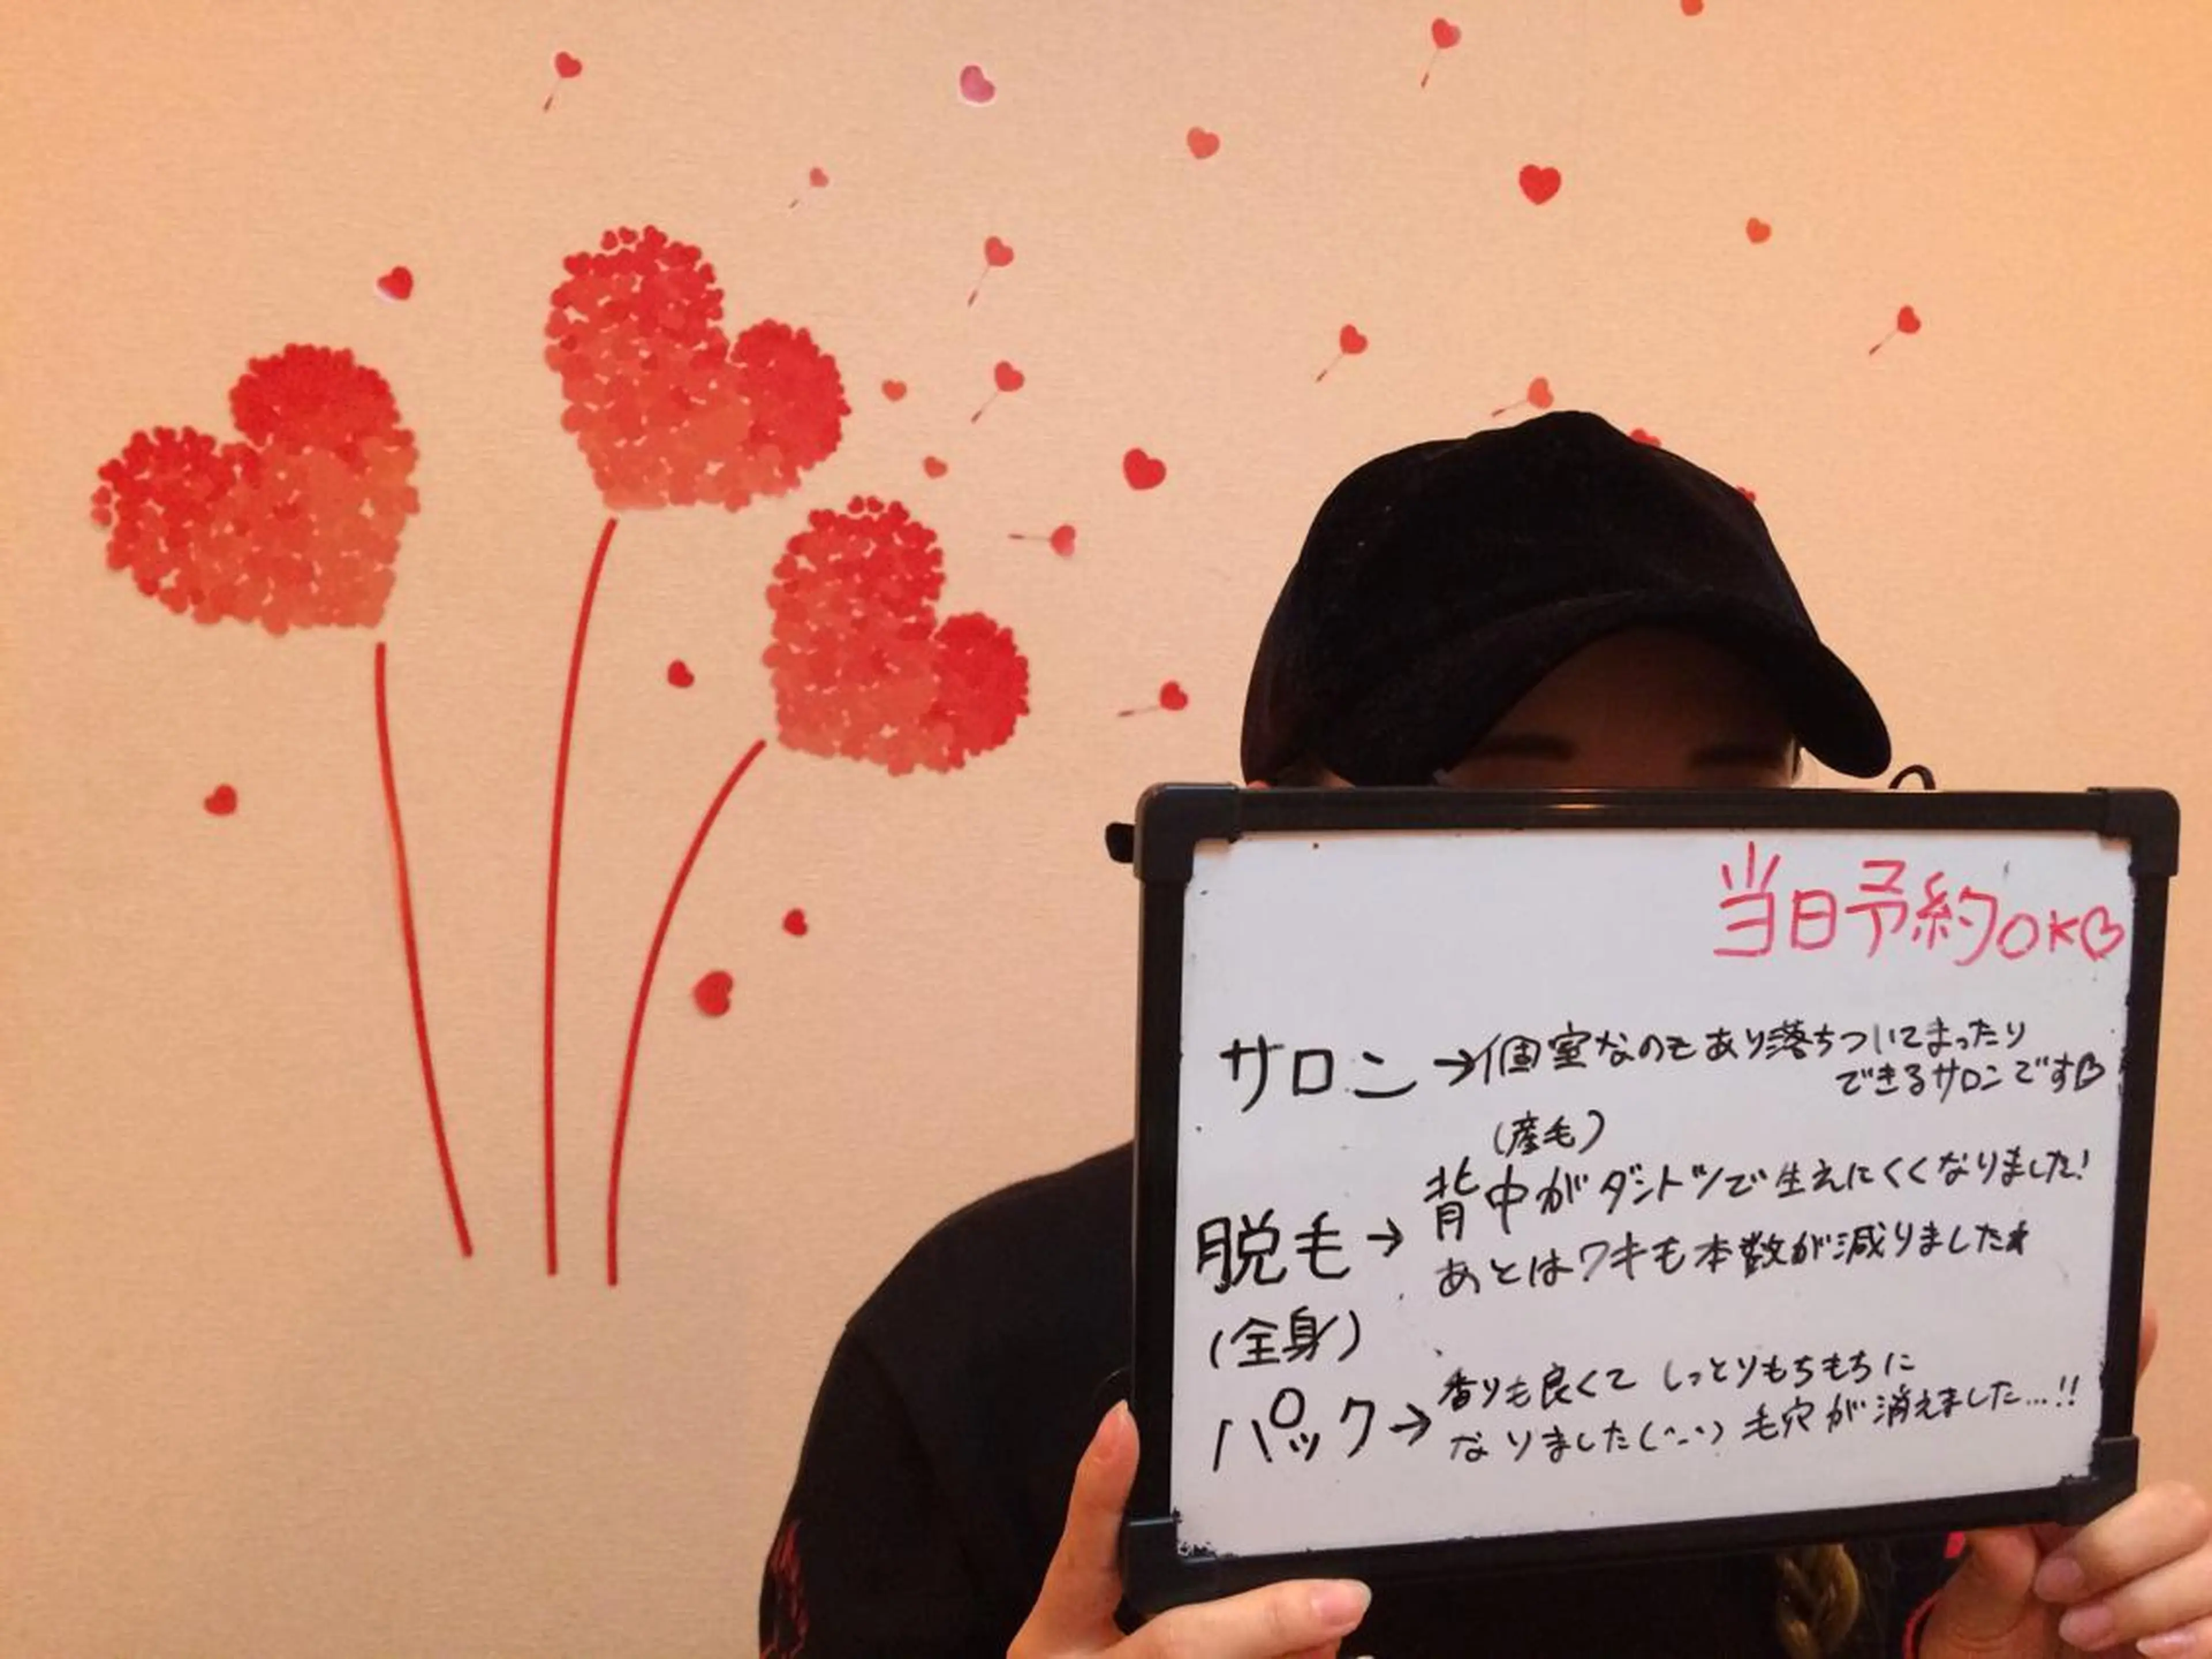 当日予約OK♡
サロン→個室なのもあり落ちついてまったり
できるサロンです♡
(産毛)
背中がダントツで生えにくくなりました!
脱毛→
あとはワキも本数が減りました★
(全身)
香りも良くて しっとりもちもちに
パック→
なりました(^-^) 毛穴が消えました...!!